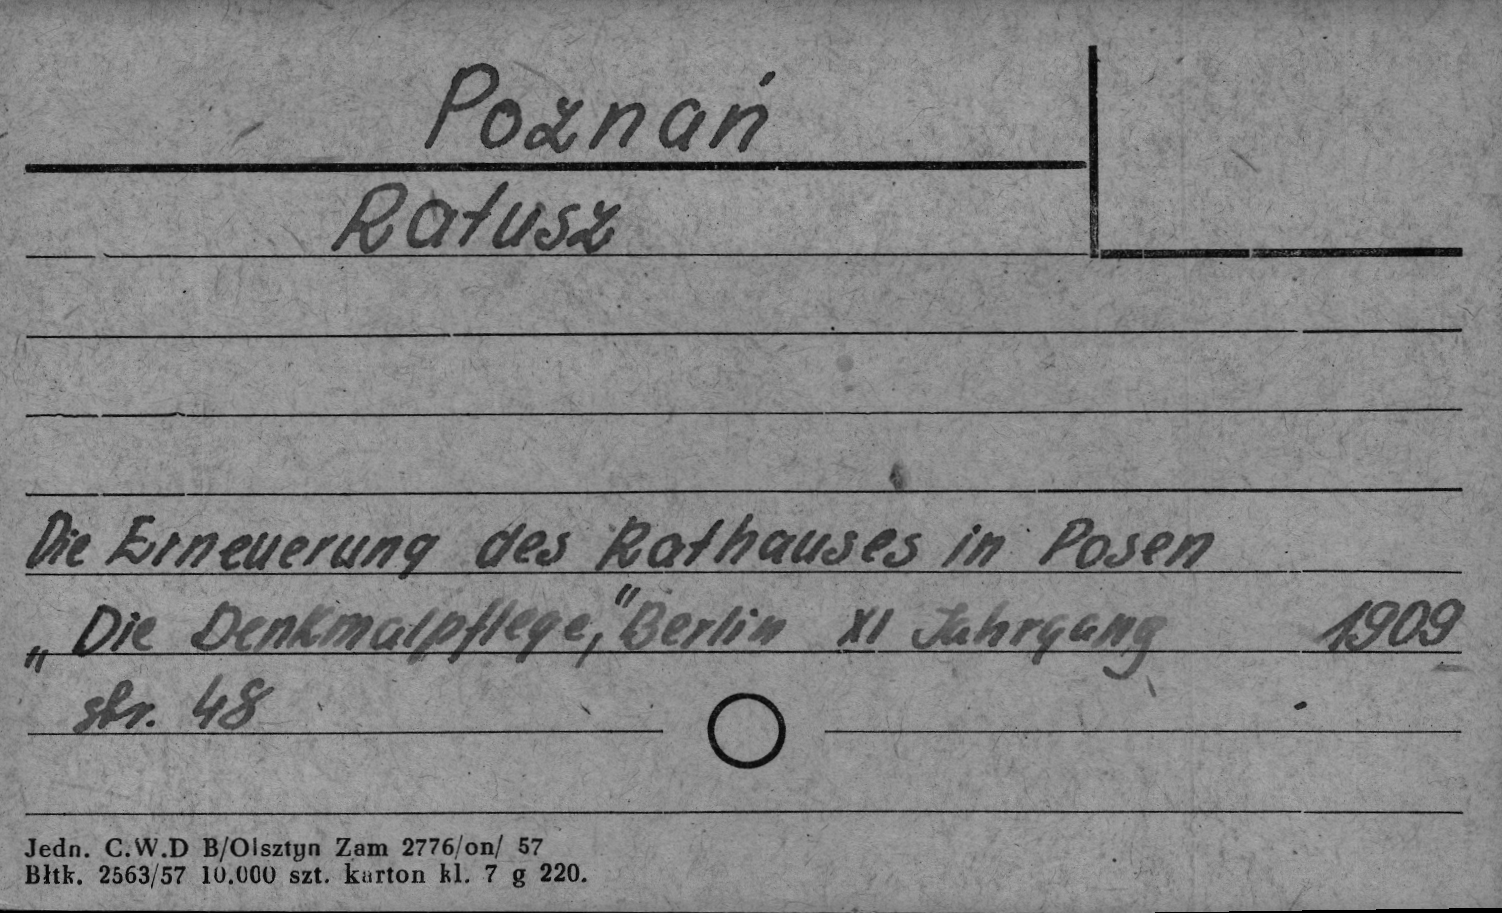 Poznań
Ratusz
Die Erneuerung des Rathauses in Posen
„Die Denkmalpflege," Berlin XI Jahrgang 1909
str. 48
Jedn. C.W.D B/Olsztyn Zam 2776/on/ 57
Błtk. 2563/57 10.000 szt. karton kl. 7 g 220.